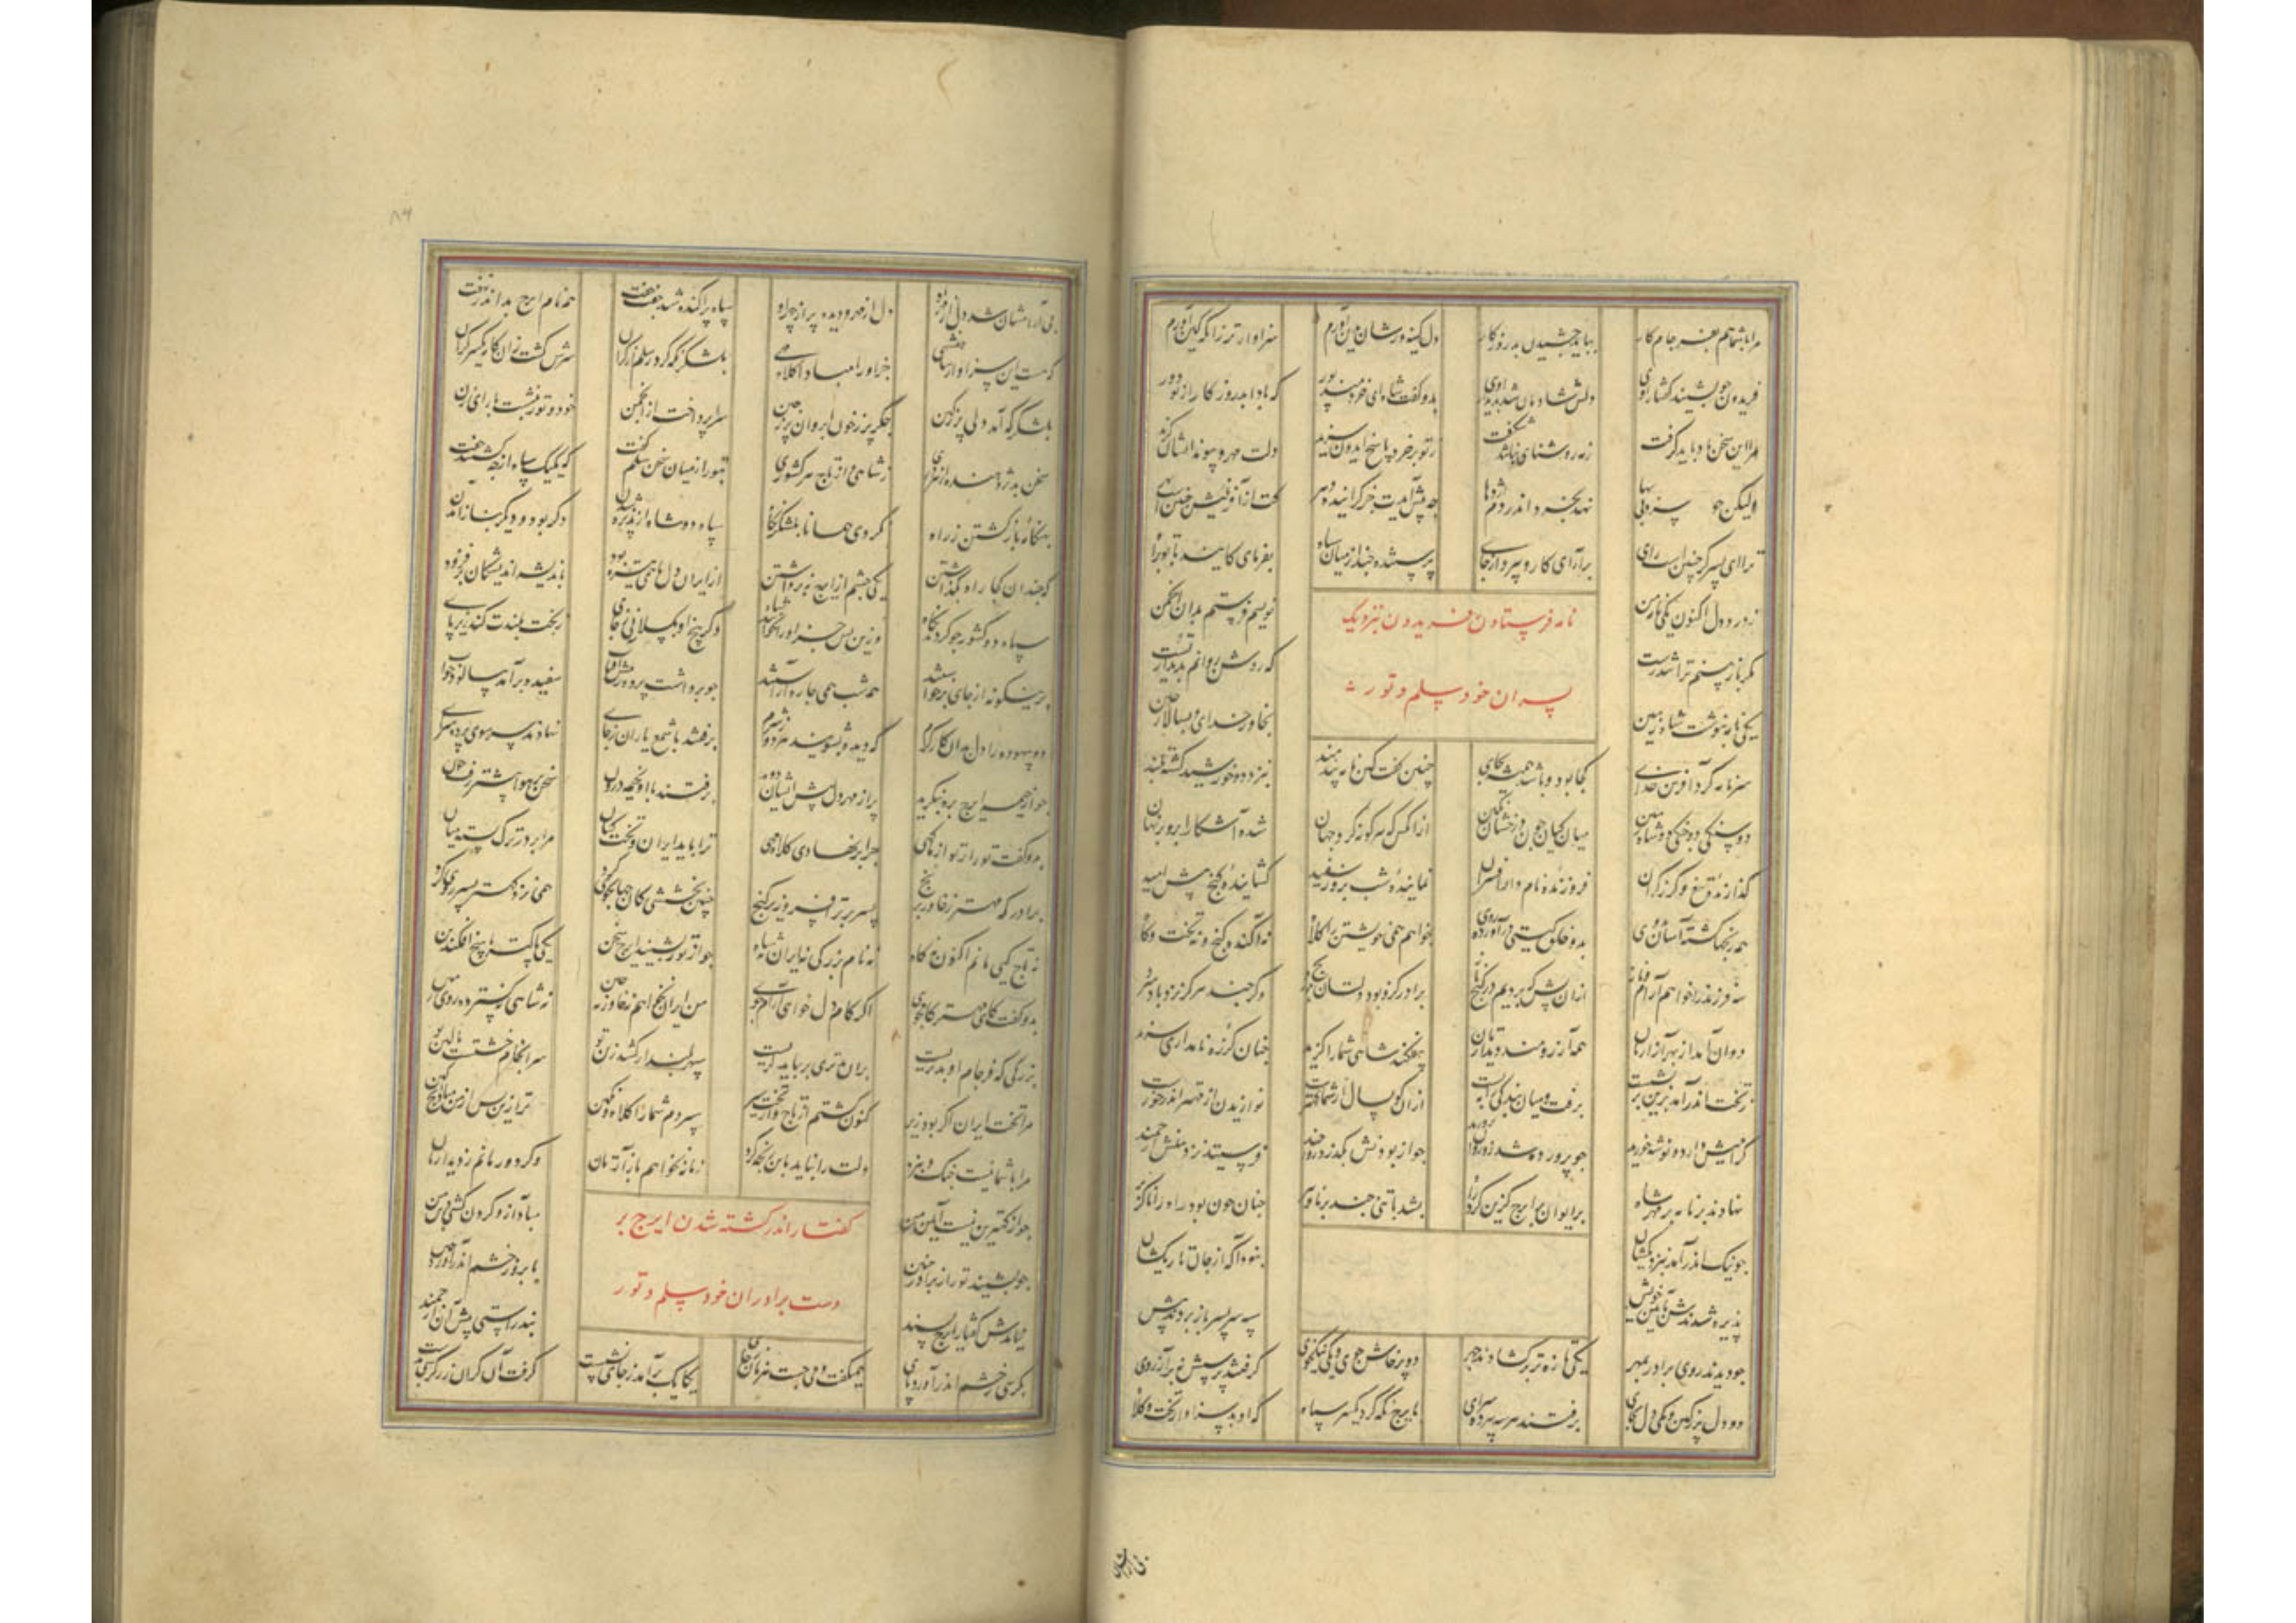 مرا با شما هم بفرجام کار بباید چشیدن بد روزگار دل کینه ورشان بدین آورم سزاوارتر زانکه کین آورم
فریدون چو بشنید گفتار اوی دلش شادمان شد بدیدار اوی بدو گفت شاه ای خردمند پور که بادا بد روزگار از تو دور
مرا این سخن یاد باید گرفت ز مه روشنایی نباشد شگفت ز تو پر خرد پاسخ ایدون سزید دلت مهر و پیوند ایشان گزید
ولیکن چو سر بی بها نهد بخرد اندر دم اژدها چه پیش آیدت جز گزاینده زهر کت از آفرینش چنین است بهر
ترا ای پسر گر چنین است رای برآرای کار و بپرداز جای پرستنده چند از میان سپاه بفرمای کایند با تو براه
ز درد دل اکنون یکی نامه من نویسم فرستم بدان انجمن
نامه فرستادن فریدون بنزدیک
مگر باز بینم ترا تن درست که روشن روانم بدیدار تست
پسران خود سلم و تور
یکی نامه بنوشت شاه زمین بخاور خدای و بسالار چین
سر نامه کرد آفرین خدای کجا بود و باشد همیشه بجای چنین گفت کین نامه پندمند بنزد دو خورشید گشته بلند
دو سنگی دو جنگی دو شاه زمین میان کیان چون درخشان نگین از آنکس که هر گونه کرد جهان شده آشکارا برو بر نهان
گذارنده تیغ و گرز گران فروزنده نام دار افسران نماینده شب بروز سفید گشاینده گنج پیش امید
همه رنجها گشته آسان بروی بدو خلق گیتی در آورده روی نخواهم همی خویشتن را کلاه نه آگنده گنج و نه تخت و گاه
سه فرزند را خواهم آرام و ناز از آن پس که بردیم رنج دراز برادر کزو بود دلتان برنج وگر چند هرگز نزد باد سرد
دوان آمد از بهر آزارتان همه آرزومند دیدارتان بیفکند شاهی شما را گزید چنان کز ره نامداری سزید
ز تخت اندر آمد بزین بر نشست برفت و میان بندگی را ببست از آن کو بسال از شما کهترست نوازیدن از مهر اندر خورست
گرامیش دارید و نوشه خورید چو پرورده شد زو روان پرورید چو از بودنش بگذرد روز چند فرستید نزد منش ارجمند
نهادند بر نامه بر مهر شاه بر ایوان بر ایرج گزین کرد راه بشد با تنی چند برنا و پیر چنان چون بود راه را ناگزیر
چو تنگ اندر آمد بنزدیکشان نبود آگه از جان تاریکشان
پذیره شدندش بآیین خویش سپه سر بسر باز بردند پیش
چو دیدند روی برادر بمهر یکی تازه تر بر گشادند چهر دو پرخاش جوی و یکی نیکخوی گرفتند پرسش نه بر آرزوی
دو دل پر ز کین و یکی دل بجای برفتند هر سه بپرده سرای بایرج نگه کرد یکسر سپاه که او بد سزاوار تخت و کلاه
بی آرامشان
۸۴
بی آرامشان شد دل از مهر اوی دل از مهر و دیده پر از چهر اوی سپاه پراکنده شد جفت جفت همه نام ایرج بد اندر نهفت
که هست این سزاوار شاهنشهی جز او را مبادا کلاه مهی بلشکر نگه کرد سلم از کران سرش گشت زان کار یکسر گران
بلشکرگه آمد دلی پر ز کین جگر پر ز خون ابروان پر ز چین سراپرده پرداخت از انجمن خود و تور بنشست با رای زن
سخن شد پژوهنده از هر دری ز شاهی و از تاج هر کشوری بتور از میان سخن سلم گفت که یک یک سپاه از چه گشتند جفت
بهنگامه باز گشتن ز راه نکردی همانا بلشکر نگاه سپاه دو شاه از پذیره شدن دگر بود و دیگر بباز آمدن
که چندان کجا راه بگذاشتند یکی چشم از ایرج نه برداشتند از ایران دل ما همی تیره بود باندیشه اندیشگان بر فزود
سپاه دو کشور چو کردم نگاه وزین پس جز او را نخوانند شاه اگر بیخ او نگسلانی ز جای ز تخت بلندت کند زیر پای
برین گونه از جای برخاستند همه شب همی چاره آراستند چو برداشت پرده ز پیش آفتاب سفیده برآمد بپالود خواب
دو بیهوده را دل بدان کار گرم که دیده بشویند هر دو ز شرم برفتند با شمع یاران ز جای نهادند سر سوی پرده سرای
چو از خیمه ایرج بره بنگرید پر از مهر دل پیش ایشان دوید برفتند با او بخیمه درون سخن بر هوا بیشتر رفت چون
بدو گفت تور ار تو از ما کهی چرا بر نهادی کلاه مهی ترا باید ایران و تخت کیان مرا بر در ترک بسته میان
برادر که مهتر ز خاور برنج بسر بر ترا افسر و زیر گنج چنین بخششی کان جهانجوی کرد همی نزد کهتر پسر روی کرد
نه تاج کیی مانم اکنون نه گاه نه نام بزرگی نه ایران نه شاه چو از تور بشنید ایرج سخن یکی پاکتر پاسخ افکند بن
بدو گفت کای مهتر کام جوی اگر کام دل خواهی آرام جوی من ایران نخواهم نه خاور نه چین نه شاهی نه گسترده روی زمین
بزرگی که فرجام او بدتریست بران مهتری بر بباید گریست سپهر بلند ار کشد زین تو سرانجام خشتست بالین تو
مرا تخت ایران اگر بود زیر کنون گشتم از تاج و از تخت سیر سپردم شما را کلاه و نگین ترا زین سپس از من مبادیچ کین
مرا با شما نیست جنگ و نبرد دلت را نباید باین رنجه کرد زمانه نخواهم بآزارتان وگر دور مانم ز دیدارتان
جز از کهتری نیست آیین من مباد آز و گردن کشی دین من
گفتار اندر کشته شدن ایرج بر
چو بشنید تور از برادر چنین بابرو ز خشم اندر آورد چین
دست برادران خود سلم و تور
نیامدش گفتار ایرج پسند نبد راستی پیش آن ارجمند
بکرسی بخشم اندر آورد پای همی گفت و می جست هر زمان ز جای یکایک برآمد ز جای نشست گرفت آن گران زر کرسی بدست